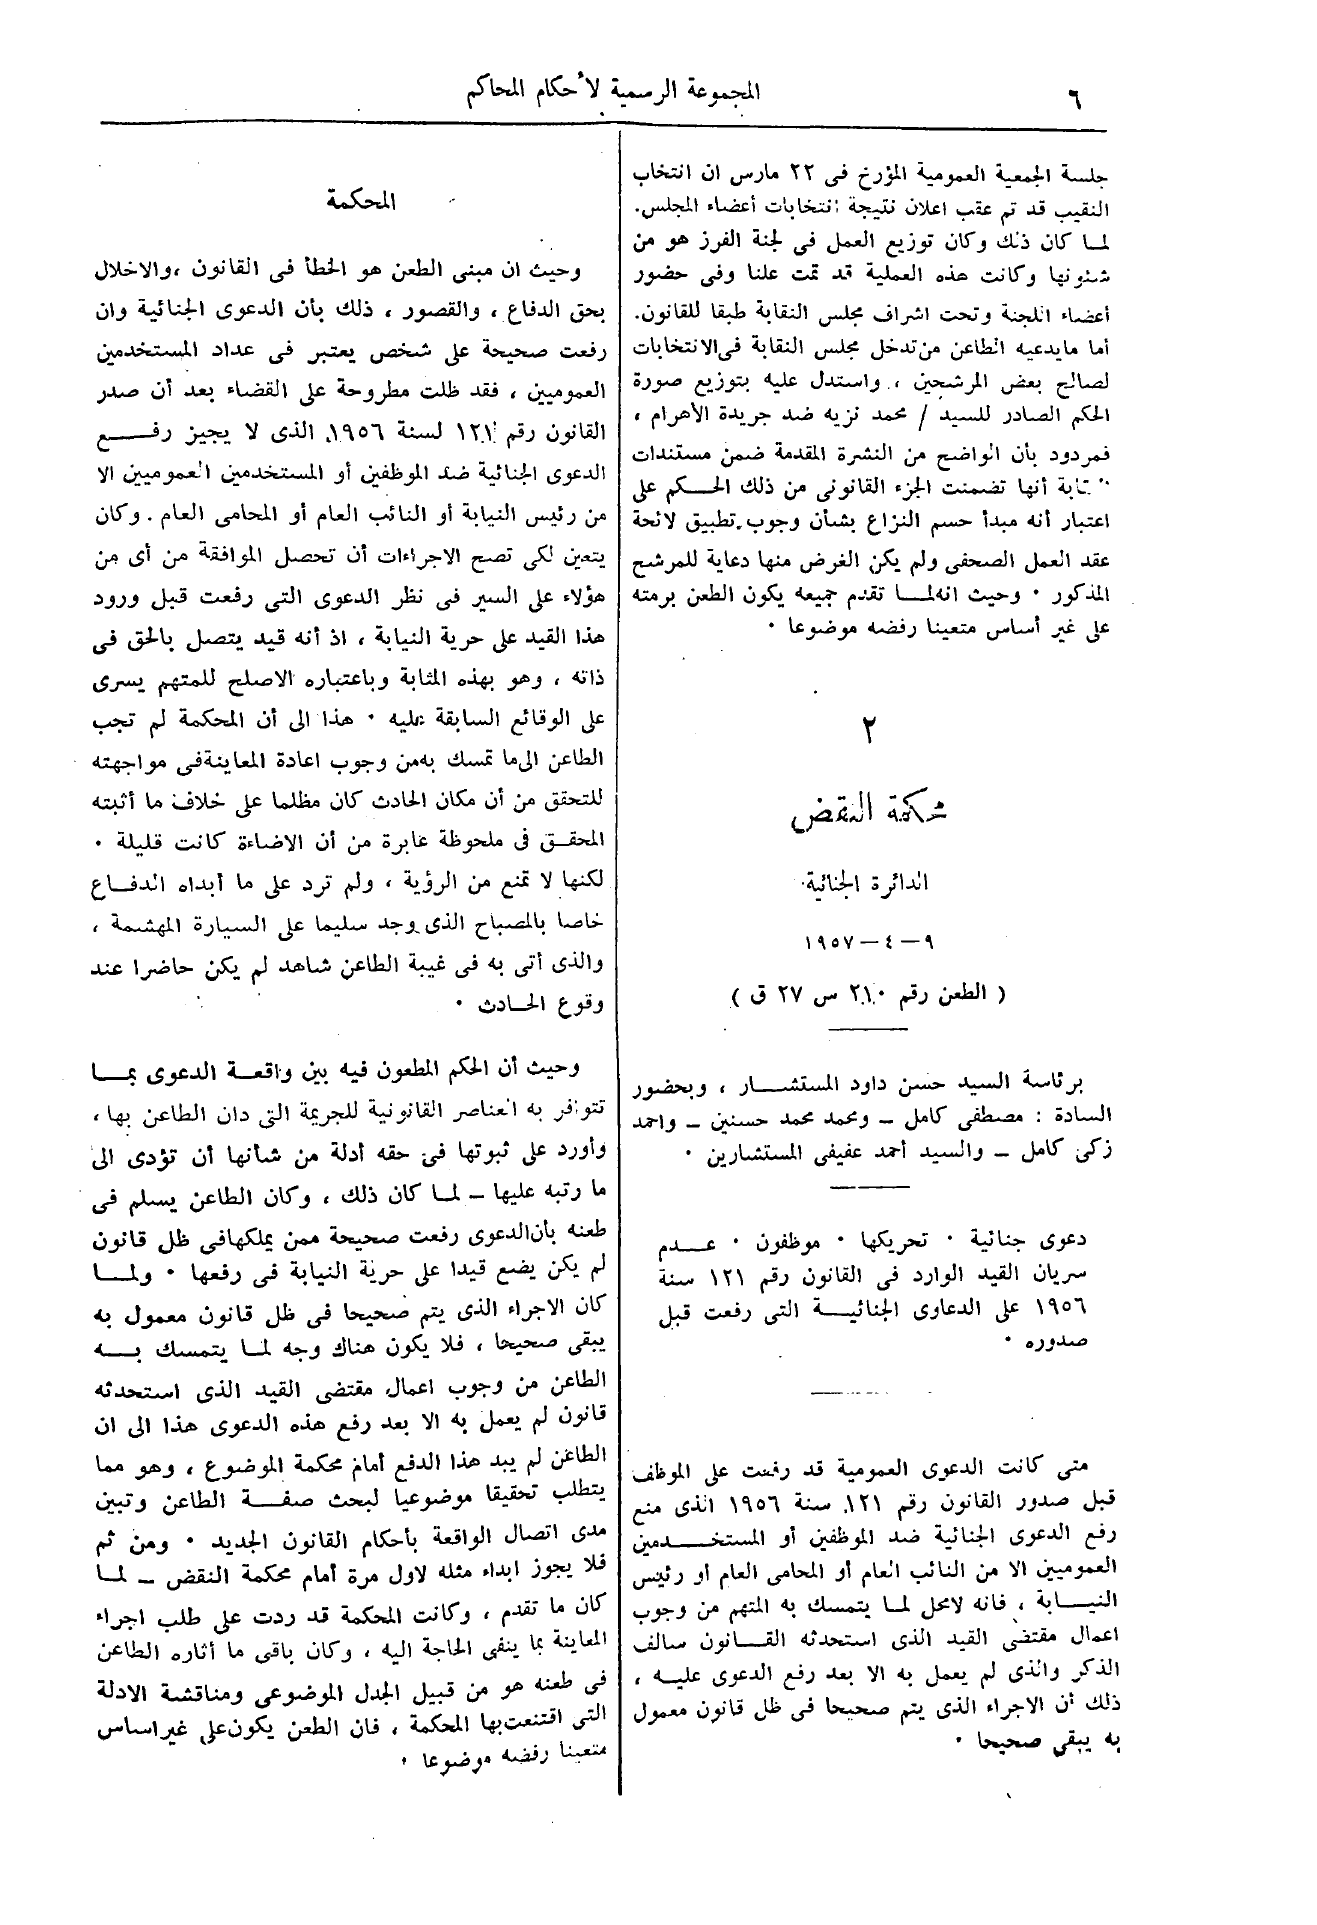 ٦
المجموعة الرسمية لأحكام المحاكم
جلسة الجمعية العمومية المؤرخ فى ٢٢ مارس ان انتخاب
النقيب قد تم عقب اعلان نتيجة انتخابات أعضاء المجلس.
لما كان ذلك وكان توزيع العمل فى لجنة الفرز هو من
شئونها وكانت هذه العملية قد تمت علنا وفى حضور
أعضاء اللجنة وتحت اشراف مجلس النقابة طبقا للقانون.
أما مايدعيه الطاعن من تدخل مجلس النقابة فى الانتخابات
لصالح بعض المرشحين ، واستدل عليه بتوزيع صورة
الحكم الصادر للسيد / محمد نزيه ضد جريدة الأهرام ،
فمردود بأن الواضح من النشرة المقدمة ضمن مستندات
أنها تضمنت الجزء القانونى من ذلك الحكم على
اعتبار أنه مبدأ حسم النزاع بشأن وجوب تطبيق لائحة
عقد العمل الصحفى ولم يكن الغرض منها دعاية للمرشح
المذكور . وحيث انه لما تقدم جميعه يكون الطعن برمته
على غير أساس متعينا رفضه موضوعا .
٢
محكمة النقض
الدائرة الجنائية
٩ – ٤ – ١٩٥٧
( الطعن رقم ٢١٠ س ٢٧ ق )
برئاسة السيد حسن داود المستشار ، وبحضور
السادة : مصطفى كامل – ومحمد محمد حسنين – واحمد
زكى كامل – والسيد أحمد عفيفى المستشارين .
دعوى جنائية . تحريكها . موظفون . عدم
سريان القيد الوارد فى القانون رقم ١٢١ سنة
١٩٥٦ على الدعاوى الجنائية التى رفعت قبل
صدوره .
متى كانت الدعوى العمومية قد رفعت على الموظف
قبل صدور القانون رقم ١٢١ سنة ١٩٥٦ الذى منع
رفع الدعوى الجنائية ضد الموظفين أو المستخدمين
العموميين الا من النائب العام أو المحامى العام أو رئيس
النيابة ، فانه لامحل لما يتمسك به المتهم من وجوب
اعمال مقتضى القيد الذى استحدثه القانون سالف
الذكر والذى لم يعمل به الا بعد رفع الدعوى عليه ،
ذلك أن الاجراء الذى يتم صحيحا فى ظل قانون معمول
به يبقى صحيحا .
المحكمة
وحيث ان مبنى الطعن هو الخطأ فى القانون ،والاخلال
بحق الدفاع ، والقصور ، ذلك بأن الدعوى الجنائية وان
رفعت صحيحة على شخص يعتبر فى عداد المستخدمين
العموميين ، فقد ظلت مطروحة على القضاء بعد أن صدر
القانون رقم ١٢١ لسنة ١٩٥٦ الذى لا يجيز رفع
الدعوى الجنائية ضد الموظفين أو المستخدمين العموميين الا
من رئيس النيابة أو النائب العام أو المحامى العام . وكان
يتعين لكى تصح الاجراءات أن تحصل الموافقة من أى من
هؤلاء على السير فى نظر الدعوى التى رفعت قبل ورود
هذا القيد على حرية النيابة ، اذ أنه قيد يتصل بالحق فى
ذاته ، وهو بهذه المثابة وباعتباره الاصلح للمتهم يسرى
على الوقائع السابقة عليه . هذا الى أن المحكمة لم تجب
الطاعن الى ما تمسك به من وجوب اعادة المعاينة فى مواجهته
للتحقق من أن مكان الحادث كان مظلما على خلاف ما أثبته
المحقق فى ملحوظة عابرة من أن الاضاءة كانت قليلة .
لكنها لا تمنع من الرؤية ، ولم ترد على ما أبداه الدفاع
خاصا بالمصباح الذى وجد سليما على السيارة المهشمة ،
والذى أتى به فى غيبة الطاعن شاهد لم يكن حاضرا عند
وقوع الحادث .
وحيث أن الحكم المطعون فيه بين واقعة الدعوى بما
تتوافر به العناصر القانونية للجريمة التى دان الطاعن بها ،
وأورد على ثبوتها فى حقه أدلة من شأنها أن تؤدى الى
ما رتبه عليها – لما كان ذلك ، وكان الطاعن يسلم فى
طعنه بأن الدعوى رفعت صحيحة ممن يملكها فى ظل قانون
لم يكن يضع قيدا على حرية النيابة فى رفعها . ولما
كان الاجراء الذى يتم صحيحا فى ظل قانون معمول به
يبقى صحيحا ، فلا يكون هناك وجه لما يتمسك به
الطاعن من وجوب اعمال مقتضى القيد الذى استحدثه
قانون لم يعمل به الا بعد رفع هذه الدعوى هذا الى ان
الطاعن لم يبد هذا الدفع أمام محكمة الموضوع ، وهو مما
يتطلب تحقيقا موضوعيا لبحث صفة الطاعن وتبين
مدى اتصال الواقعة بأحكام القانون الجديد . ومن ثم
فلا يجوز ابداء مثله لاول مرة أمام محكمة النقض – لما
كان ما تقدم ، وكانت المحكمة قد ردت على طلب اجراء
المعاينة بما ينفى الحاجة اليه ، وكان باقى ما أثاره الطاعن
فى طعنه هو من قبيل الجدل الموضوعى ومناقشة الادلة
التى اقتنعت بها المحكمة ، فان الطعن يكون على غير اساس
متعينا رفضه موضوعا .